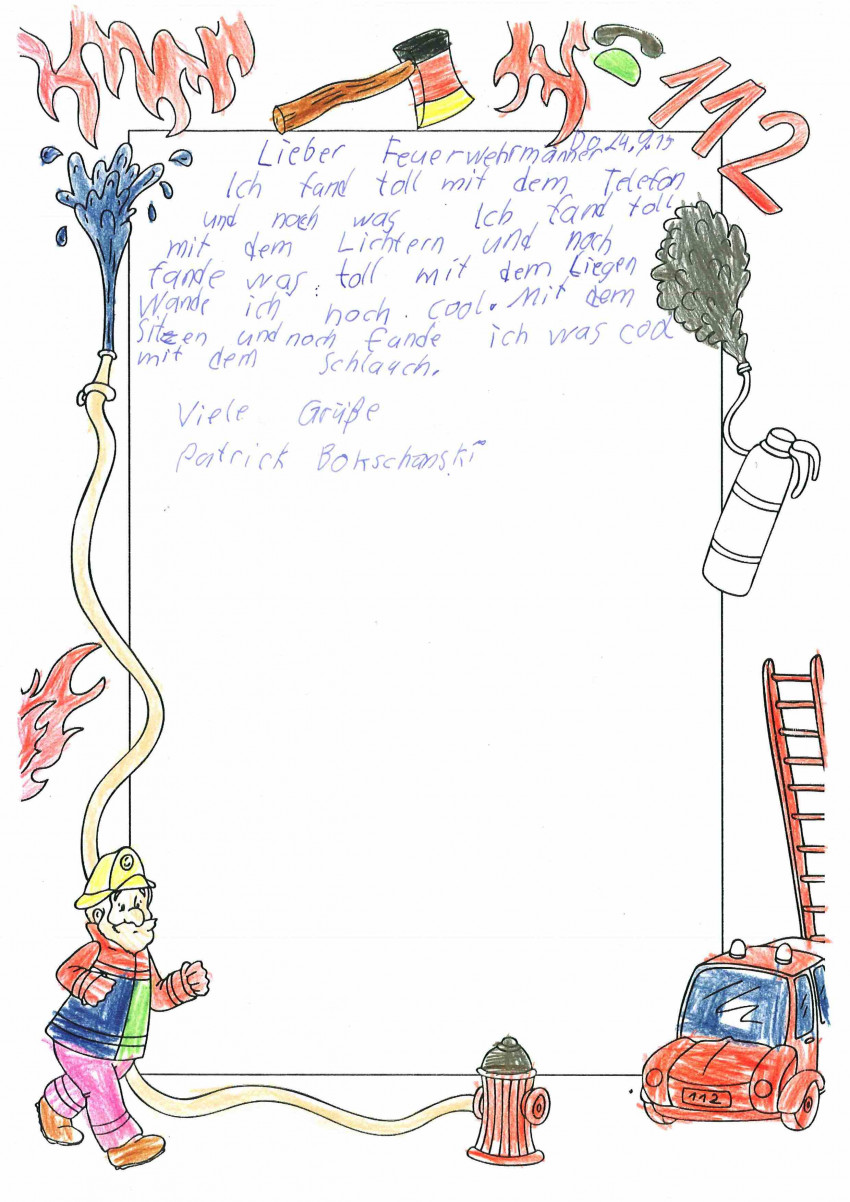 112
Do 24.9.15
Lieber Feuerwehrmänner
Ich fand toll mit dem Telefon
und noch was Ich fand toll
mit dem Lichtern und noch
fande was toll mit dem Liegen
Wande ich noch. cool. Mit dem
Sitzen und noch fande ich was cool
mit dem Schlauch.
Viele Grüße
Patrick Bokschanski
112